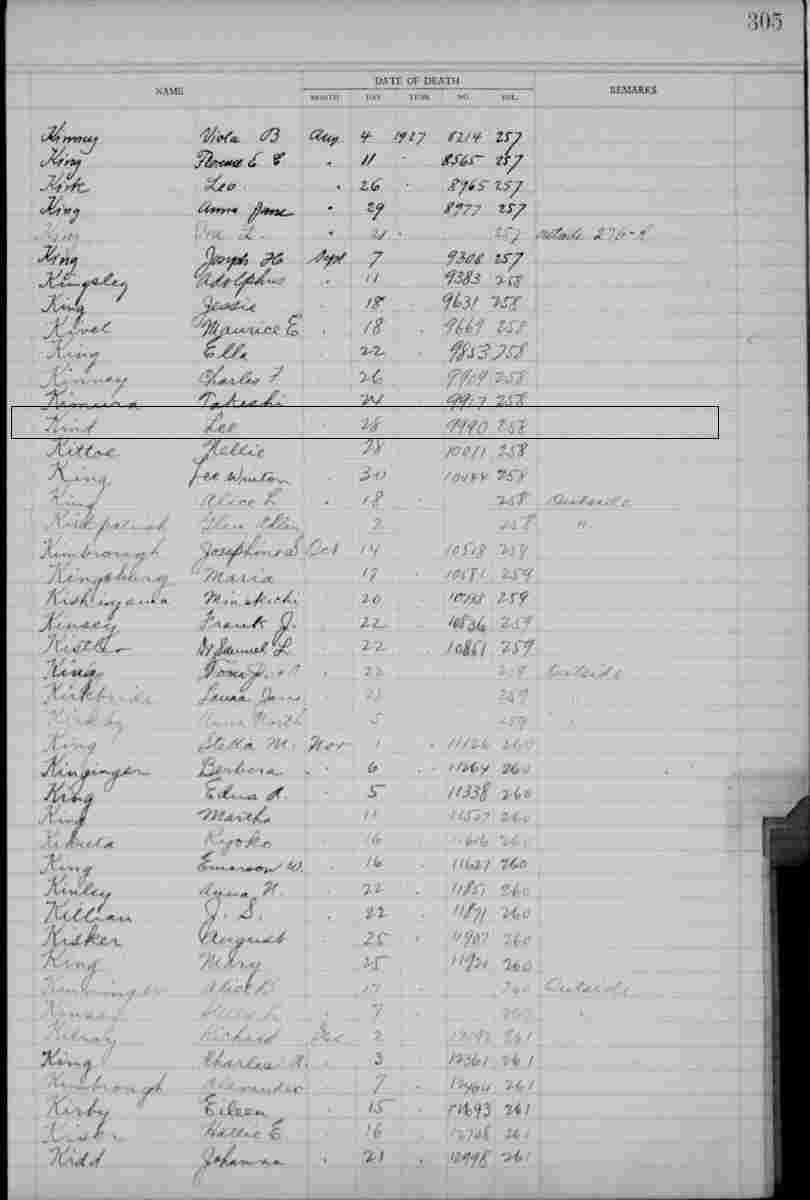 305
NAME DATE OF DEATH REMARKS
MONTH DAY YEAR NO. VOL.
Kinney Viola B Aug 4 1927 8214 257
King Florence E C " 11 " 8565 257
Kirk Leo " 26 " 8965 257
King Anna Jane " 29 8977 257
King 21 " 257 outside 276-R
King Joseph H Sept 7 9308 257
Kingsley Adolphus " 11 9383 258
King Jessie " 18 " 9631 258
Kivel Maurice E " 18 " 9669 258
King Ella " 22 " 9853 258
Kinney Charles F. " 26 " 9909 258
Kimura Takeshi 24 9917 258
Kind Lee " 28 " 9990 258
Kittoe Nellie 28 10011 258
King Lee Winton " 30 258
King Alice L " 18 " 258 Outside
Kirkpatrick Glen 2 258 "
Kimbrough Josephine S Oct 14 10518 259
Kingsbury Maria 17 10581 259
Kishiyama Minekichi 20 259
Kinsey Frank J. 22 10836 259
Kistler Dr Samuel L. 22 10861 259
King 22 259 Outside
Kirkbride Laura Jane 259 "
Kirkby Anna North 5 259 "
King Stella M. Nov 1 " 11126 260
Kinginger Berbera " 6 " 11264 260
King Edna A. " 5 11338 260
King Martha 11 11507 260
Kikuta Kyoko " 16 " 260
King Emerson W. " 16 " 11627 260
Kinley Anna H. " 22 " 11851 260
Killian J. S. " 22 " 11871 260
Kisker August " 25 " 11907 260
King Mary 25 11921 260
Kenninger Alice B 17 " 260 Outside
Kinsey 7 " 260 "
Kilroy Richard Dec 2 " 261
King Charles A. " 3 12361 261
Kimbrough Alexander 7 " 12464 261
Kirby Eileen " 15 " 12693 261
Hallie E " 16 " 12708 261
Kidd Johanna " 21 " 12998 261